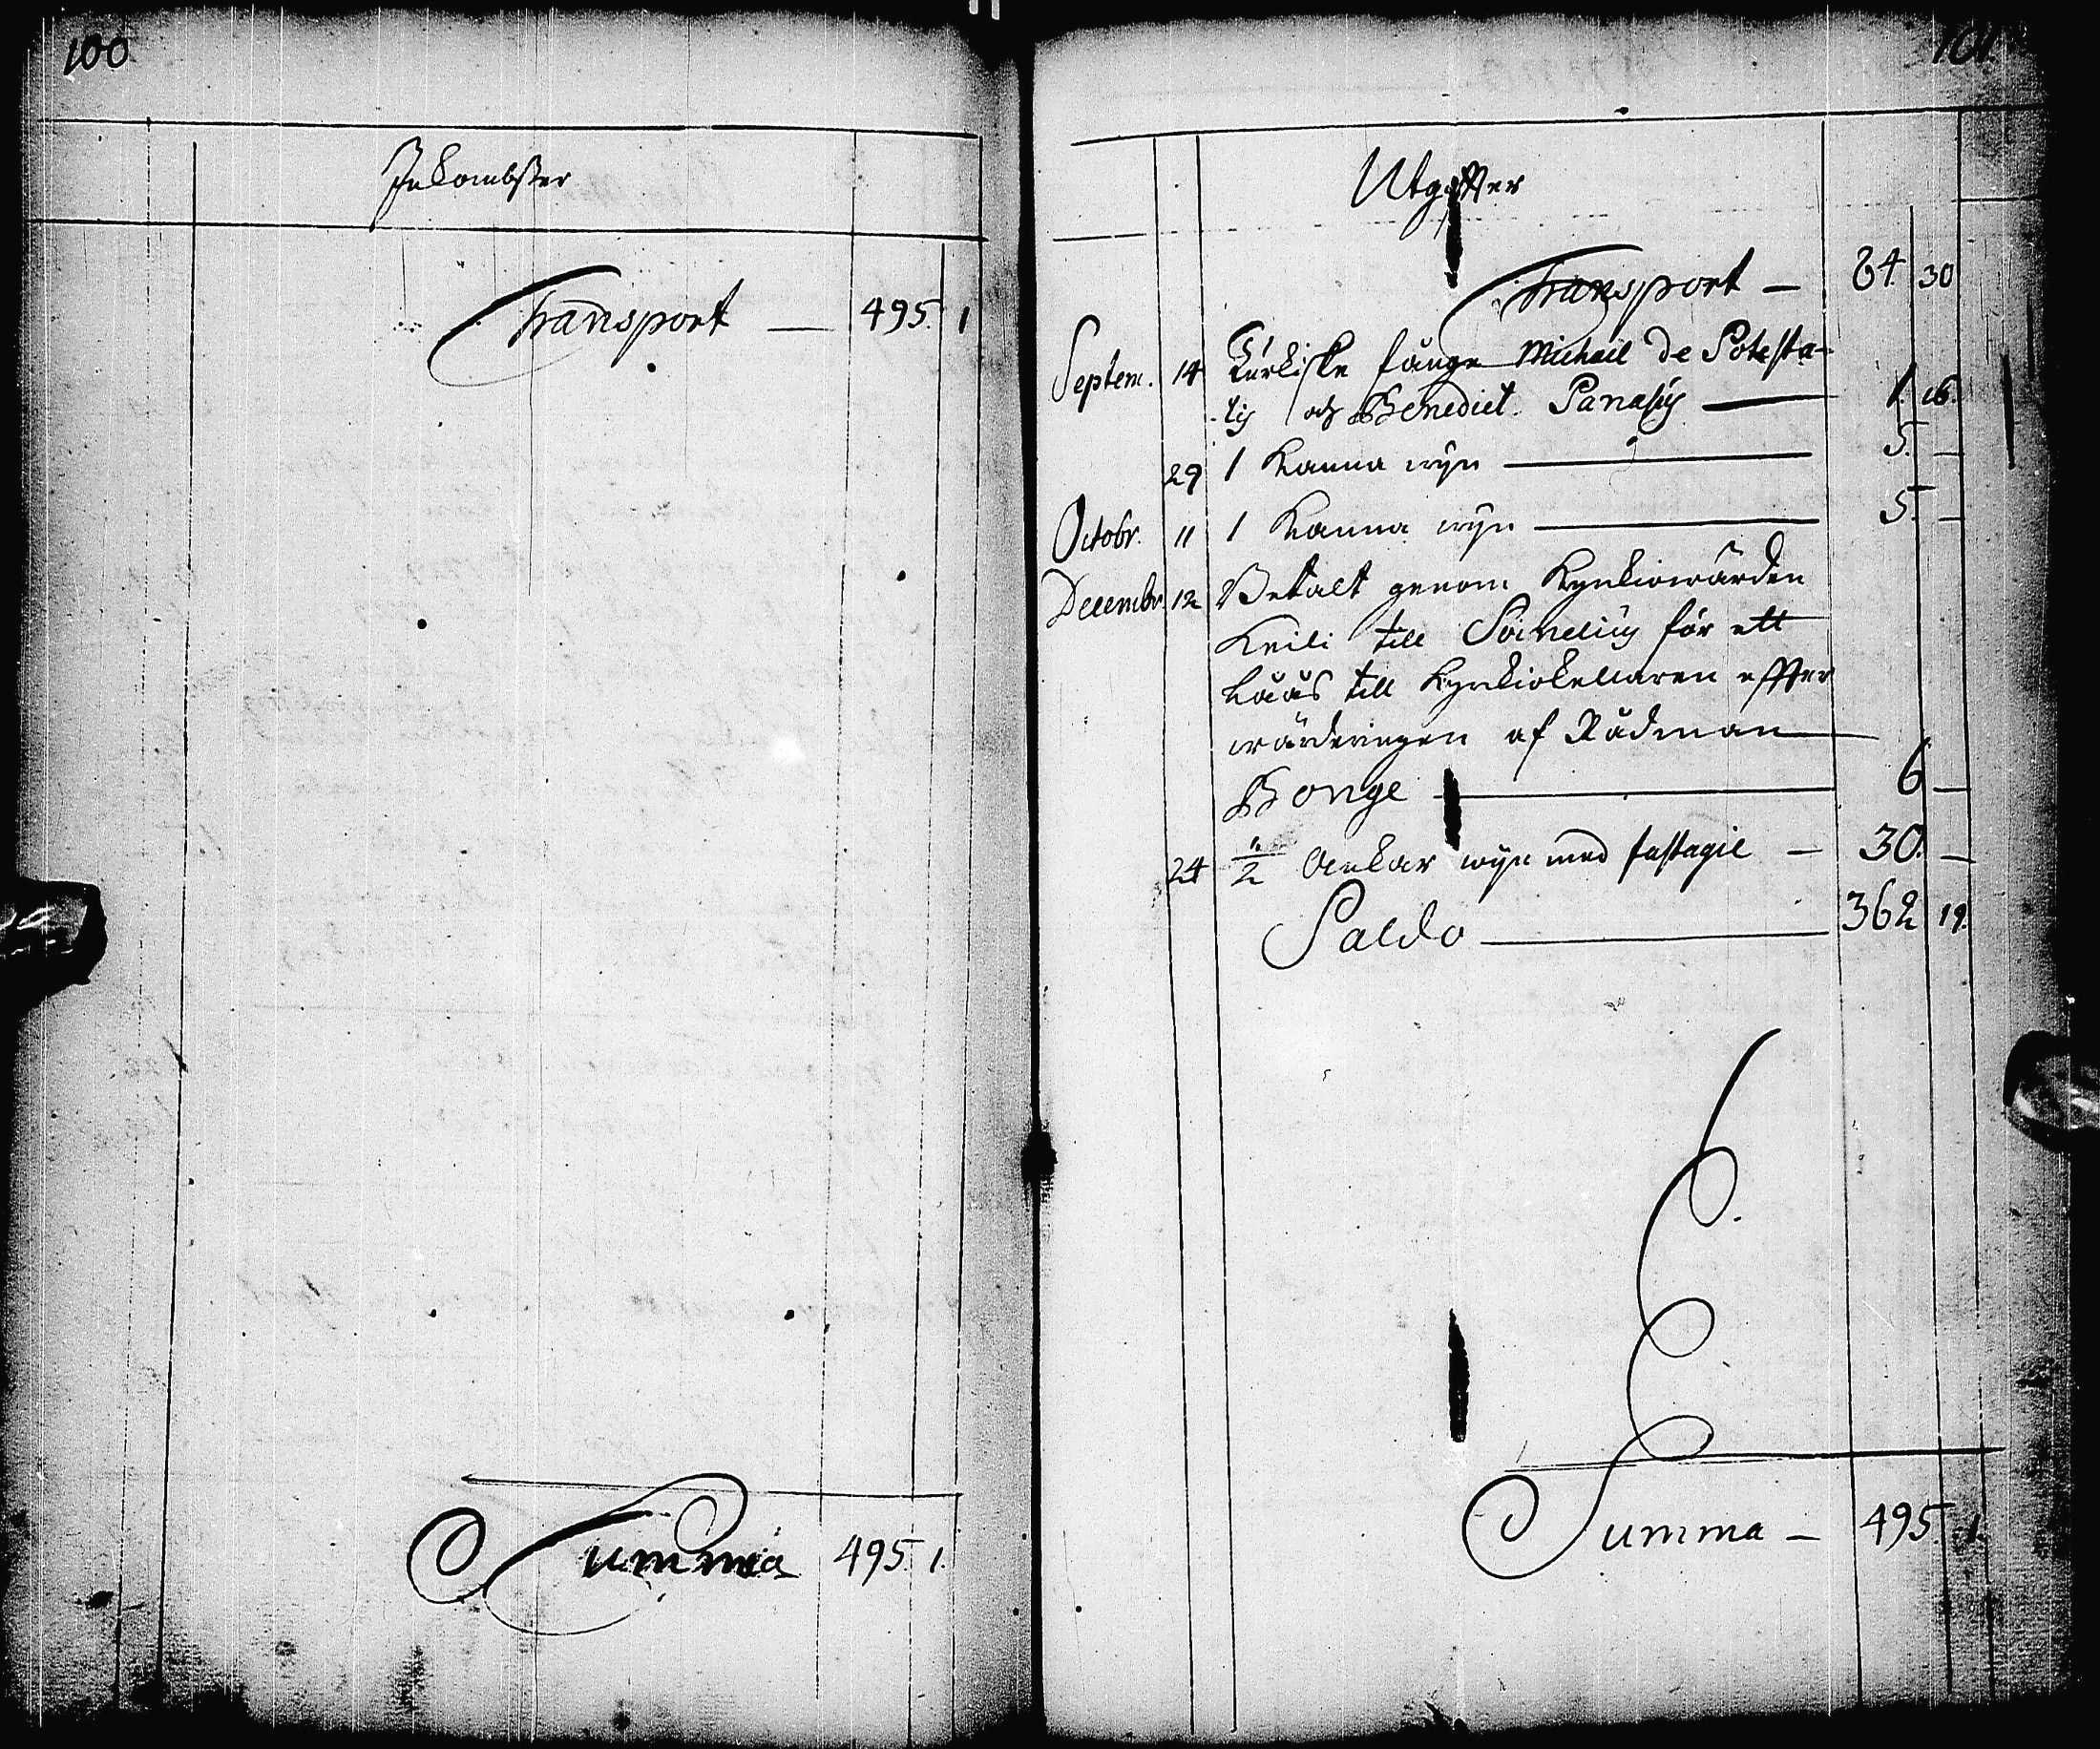 100
Inkombster
Transport — 495. 1
Summa 495. 1.
101.
Utgiffter
Transport — 84. 30
Septem. 14 Turkiske fånge Michael De Potesta-
-tis och Benedict. Panasÿ — 1. 16.
29 1 Kanna wijn — 5. —
Octobr. 11 1 Kanna wijn — 5. —
Decembr. 12 Betalt genom Kyrkiowärden
Keili till för ett
Låås till Kyrkiokellaren effter
wärderingen af Rådman
Bonge — 6 —
24 1/2 Ankar wijn med fastagie — 30. —
Saldo — 362 19.
Summa — 495. 1.